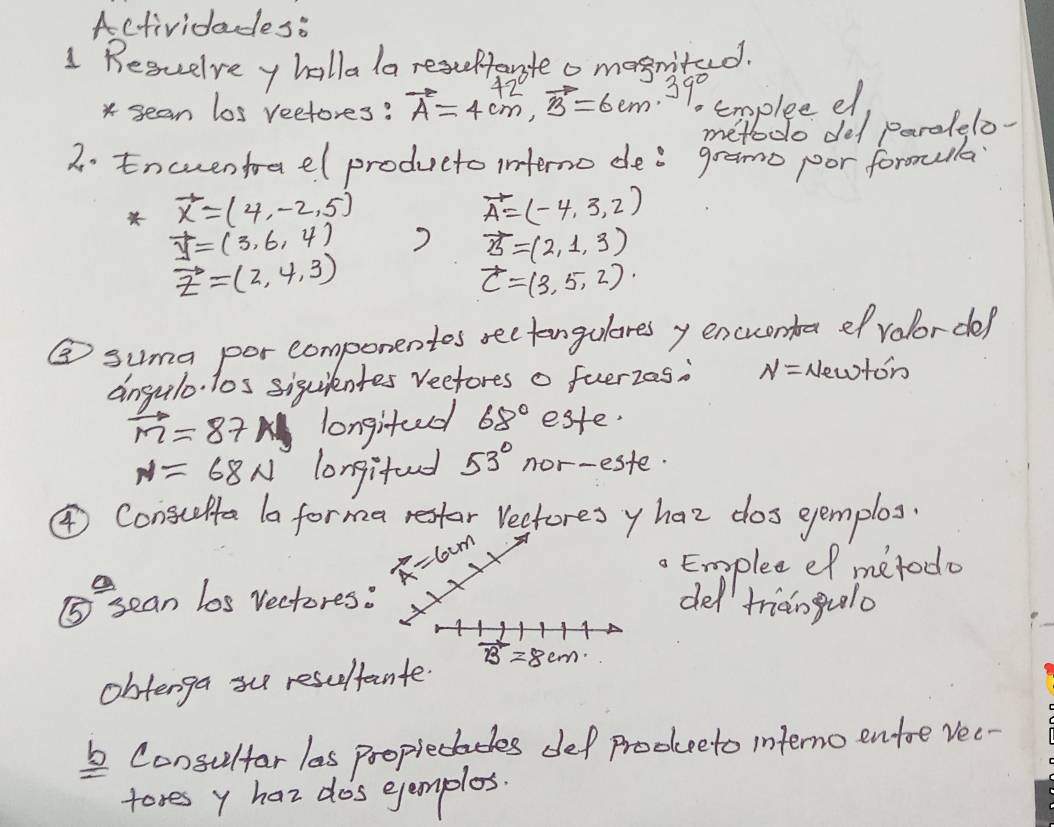 Actividades:
1 Resuelve y halla la resultante o magnitud.
* sean los vectores: A = 4 cm, 42° B = 6 cm. 39° . Emplee el
método del paralelo-
2. Encuentra el producto interno de: gramo por formula.
* X = (4, -2, 5) , A = (-4, 3, 2)
Y = (3, 6, 4) B = (2, 1, 3)
Z = (2, 4, 3) C = (3, 5, 2).
③ suma por componentes rectangulares y encuentra el valor del
ángulo. los siguientes vectores o fuerzas: N = Newtón
m = 87 N longitud 68° este.
N = 68 N longitud 53° nor-este.
④ Consulta la forma restar Vectores y haz dos ejemplos.
⑤ a sean los vectores: A = 6cm • Emplee el método
del triángulo
B = 8cm.
obtenga su resultante.
b Consultar las propiedades del Producto interno entre vec-
tores y haz dos ejemplos.